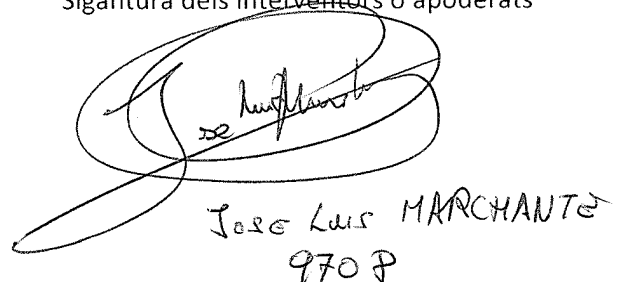 Sigantura dels interventors o apoderats
JOSE LUIS MARCHANTE
970 P